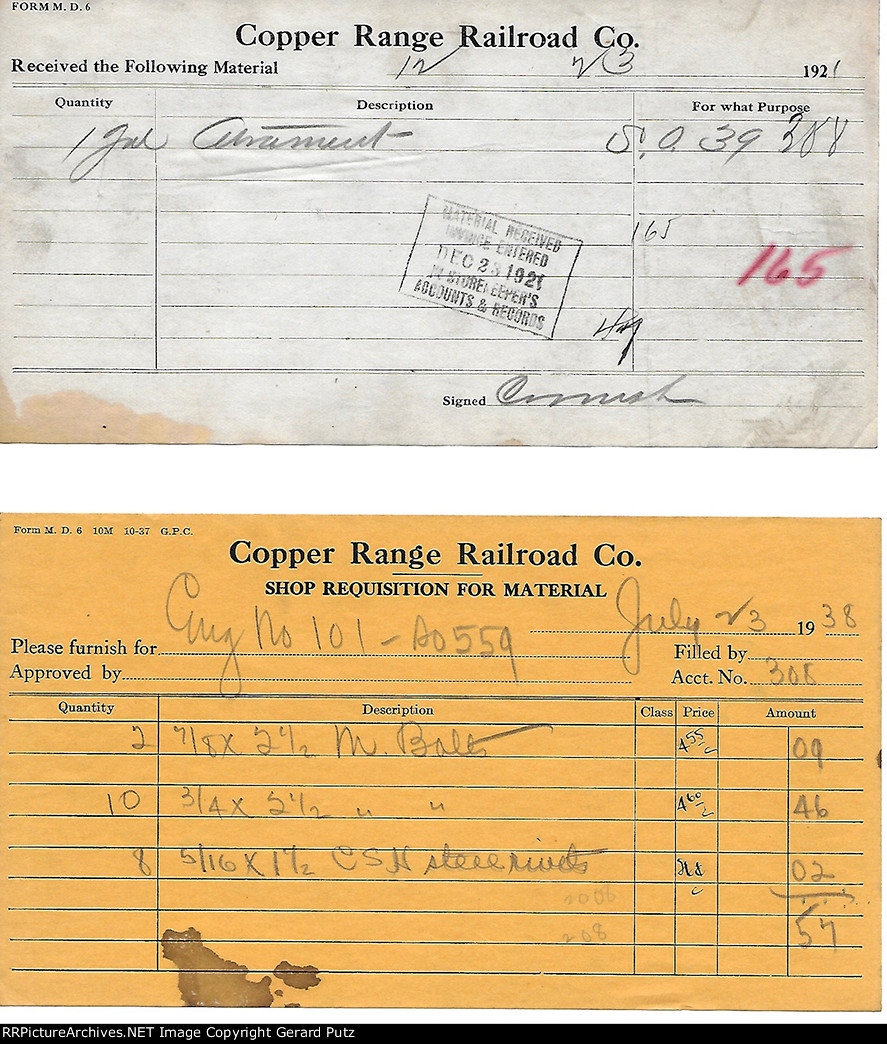 FORM M. D. 6
Copper Range Railroad Co.
Received the Following Material 12 23 1921
Quantity Description For what Purpose
1 Gal Atrament S. O. 39 388
165
MATERIAL RECEIVED
INVOICE ENTERED
DEC 23 1921
IN STOREKEEPER'S
ACCOUNTS & RECORDS
165
Signed Cornish
Form M. D. 6 10M 10-37 G.P.C.
Copper Range Railroad Co.
SHOP REQUISITION FOR MATERIAL
July 23 1938
Please furnish for Eng No 101 - AO559 Filled by
Approved by Acct. No. 308
Quantity Description Class Price Amount
2 7/8 x 2 1/2 M. Bolts 4 55 c 09
10 3/4 x 2 1/2 " " 4 60 c 46
8 5/16 x 1 1/2 C S H steel rivets 02
2008
208 57
RRPictureArchives.NET Image Copyright Gerard Putz